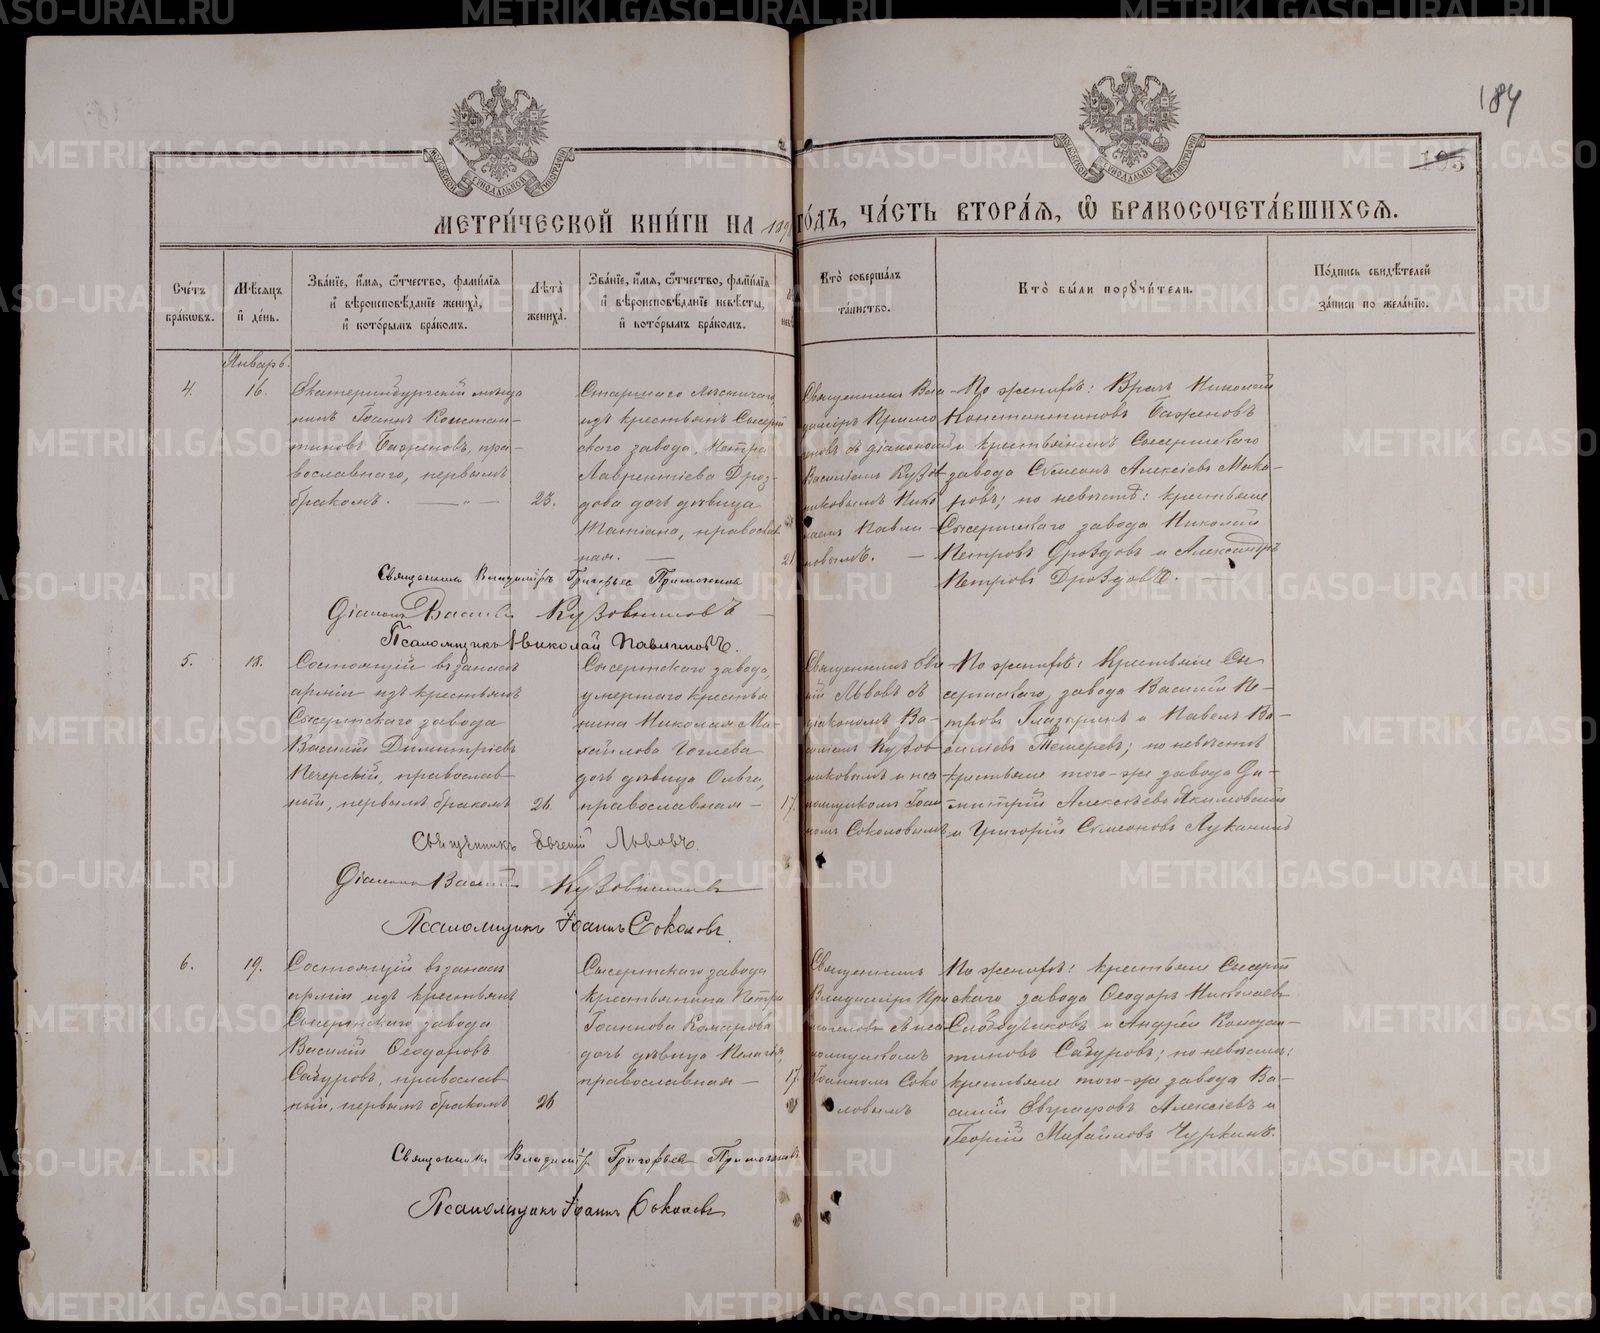 184
105
МОСКОВСКОЙ СѴНОДАЛЬНОЙ ТИПОГРАФІИ
МОСКОВСКОЙ СѴНОДАЛЬНОЙ ТИПОГРАФІИ
МЕТРИ́ЧЕСКОЙ КНИ́ГИ НА 189 ГО́ДЪ, ЧА́СТЬ ВТОРА́Я, Ѡ БРАКОСОЧЕТА́ВШИХСЯ.
Сче́тъ бра́кѡвъ.
Мѣ́сяцъ и҆ де́нь.
Зва́нїе, и҆́мя, ѻ҆́тчество, фами́лїя и҆ вѣроисповѣ́данїе жениха̀, и҆ кото́рымъ бра́комъ.
Лѣта̀ жениха̀.
Зва́нїе, и҆́мя, ѻ҆́тчество, фами́лїя и҆ вѣроисповѣ́данїе невѣ́сты, и҆ кото́рымъ бра́комъ.
Кто̀ соверша́лъ та́инство.
Кто̀ бы́ли поручи́тели.
По́дпись свидѣ́телей за́писи по жела́нїю.
Январь.
4.
16.
Екатеринбургскій мѣща
нинъ Іоаннъ Констан-
тиновъ Баженовъ, пра-
вославнаго, первымъ
бракомъ.
23.
изъ крестьянъ Сысерт
скаго завода, Петра
Лаврентіева Дроз-
дова дочь дѣвица
Татіана, православ
ная. —
21
Священникъ Вла
диміръ Примо
геновъ съ діакономъ
Василіемъ Кузов
никовымъ Нико
лаемъ Павли-
новымъ. —
По женихѣ: Врачъ Николай
Константиновъ Баженовъ
и крестьянинъ Сысертскаго
завода Сѵмеонъ Алексіевъ Мака-
ровъ; по невѣстѣ: крестьяне
Сысертскаго завода Николай
Петровъ Дроздовъ и Александръ
Петровъ Дроздовъ. —
Священникъ Владиміръ Григорьевъ Примогеновъ
Діаконъ Василій Кузовниковъ
Псаломщикъ Николай Павлиновъ.
5.
18.
Состоящій въ запасѣ
арміи изъ крестьянъ
Сысертскаго завода
Василій Димитріевъ
Печерскій, православ
ный, первымъ бракомъ
26
Сысертскаго завода,
умершаго крестья
нина Николая Ми-
хайлова
дочь дѣвица Ольга,
православная —
17.
Священникъ Евге
ній Львовъ съ
діакономъ Ва-
силіемъ Кузов
никовымъ и пса
ломщикомъ Іоан
номъ Соколовымъ
По женихѣ: Крестьяне Сы
сертскаго, завода Василій Пе-
тровъ Глазыринъ и Павелъ Ва-
силіевъ Темеревъ; по невѣстѣ
крестьяне того-же завода Ди-
митрій Алексѣевъ Якимовскій
и Григорій Сѵмеоновъ Луканинъ
Священникъ Евгеній Львовъ.
Діаконъ Василій Кузовниковъ
Псаломщикъ Іоаннъ Соколовъ.
6.
19.
Состоящій въ запасѣ
арміи изъ крестьянъ
Сысертскаго завода
Василій Ѳеодоровъ
Сачуровъ, православ
ный, первымъ бракомъ
26
Сысертскаго завода
крестьянина Петра
Іоаннова Комарова
дочь дѣвица Пелагея,
православная —
17.
Священникъ
Владиміръ При
могеновъ съ пса
ломщикомъ
Іоанномъ Соко
ловымъ
По женихѣ: крестьяне Сысерт
скаго завода Ѳеодоръ Николаевъ
Слободчиковъ и Андрей Констан-
тиновъ Сачуровъ; по невѣстѣ:
крестьяне того-же завода Ва-
силій Евграфовъ Алексіевъ и
Георгій Михайловъ Чуркинъ.
Священникъ Владиміръ Григорьевъ Примогеновъ
Псаломщикъ Іоаннъ Соколовъ
METRIKI.GASO-URAL.RU